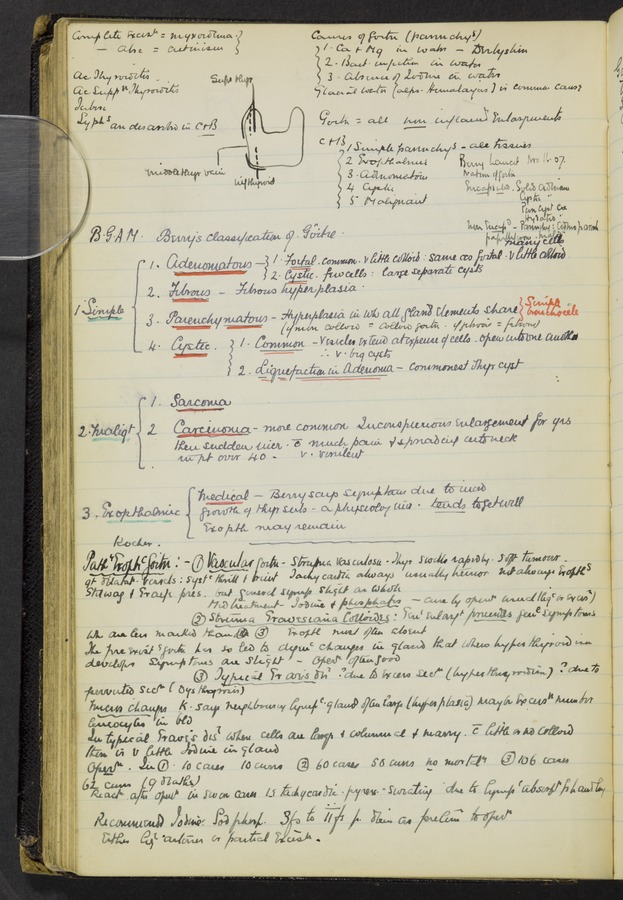 Complete Excis^n = myxoedema
— absc = cretinism
Ac Thyroiditis
Ac Supp^ve Thyroiditis
Tuberc
Syph^s as described in C+B
Sup Thyr
middle thyr vein
Inf thyroid
Causes of goitre (parenchy^s)
1. Ca + Mg in water — Derbyshire
2. Bact infection in water
3. absence of Iodine in water
Glacial water (esps. Himalayas) is common cause
Goitre = all non inflamed Enlargements
C+B
1 Simple parenchy^s — all tissues
2 Exopthalmic
3. Adenomatous
4 Cystic
5 Malignant
Berry Lancet Nov 11. 07.
Encapsuled. Solid adenoma
Cystic
many cells
B.G.A.M. Berry's classification of Goitre.
1 Simple
1. Adenomatous — 1. Foetal. common. v little colloid. same as foetal. v little colloid
2. Cystic. few cells: large separate cysts
2. Fibrous — Fibrous hyperplasia.
3. Parenchymatous — Hyperplasia in wh all gland elements share
Simple bronchocele
(if much colloid = colloid goitre. if fibrous = fibroid)
4. Cystic. 1. Common — Vesicles extend at expense of cells. open into one another
∴ v. big cysts
2. Liquefaction in Adenoma — commonest thyr cyst
2. Maligt
1. Sarcoma
2 Carcinoma — more common Inconspicuous enlargement for yrs
then sudden incr. c̄ much pain & spreading into neck
in pt over 40 — v. virulent
3. Exopthalmic
Medical — Berry says symptoms due to incd
growth of thyr sels — a physiology incr. tends to get well
Exopth may remain
Kocher.
Path^y Exopth^c Goitre: — (1) Vascular goitre — Struma vasculosa. Thyr swells rapidly. soft tumour.
gt dilatat^n vessels: syst^c thrill & bruit Tachycardia always usually tremor not always Exopth^s
Stelwag & Graefe pres. but general symps slight as whole
Med treatment Iodine & phosphates — cure by operat^n usual (lig^e or Excis^n)
(2) Struma Gravesiana Colloides: Thyr enlargt precedes genl symptoms
wh are less marked than in (3) Exopth most often absent
The previous goitre has so led to degen^e changes in gland that when hyperthyroidism
develops symptoms are slight — oper^n often good
(3) Typical Graves Dis^e ? due to excess secr^n (hyperthyroidism) ? due to
perverted secr^n (Dysthyrosis)
Micros changes K. says neighbouring lymph^c gland often large (hyperplasia) maybe excess^ve number
leucocytes in bld
In typical Graves's dis^e where cells are large & columnar & many. c̄ little or no colloid
there is v little Iodine in gland
Operat^n. In (1). 10 cases 10 cures (2) 60 cases 58 cures no mortal^y (3) 106 cases
62 cures (9 deaths)
React^n after operat^n in severe cases is tachycardia. pyrexia. sweating due to lymph^c absorpt^n
Recommend Iodine Sod phosp. 3fs to 11fs p. diem as prelim to operat^n
Either lig^e arteries or partial Excis^n.